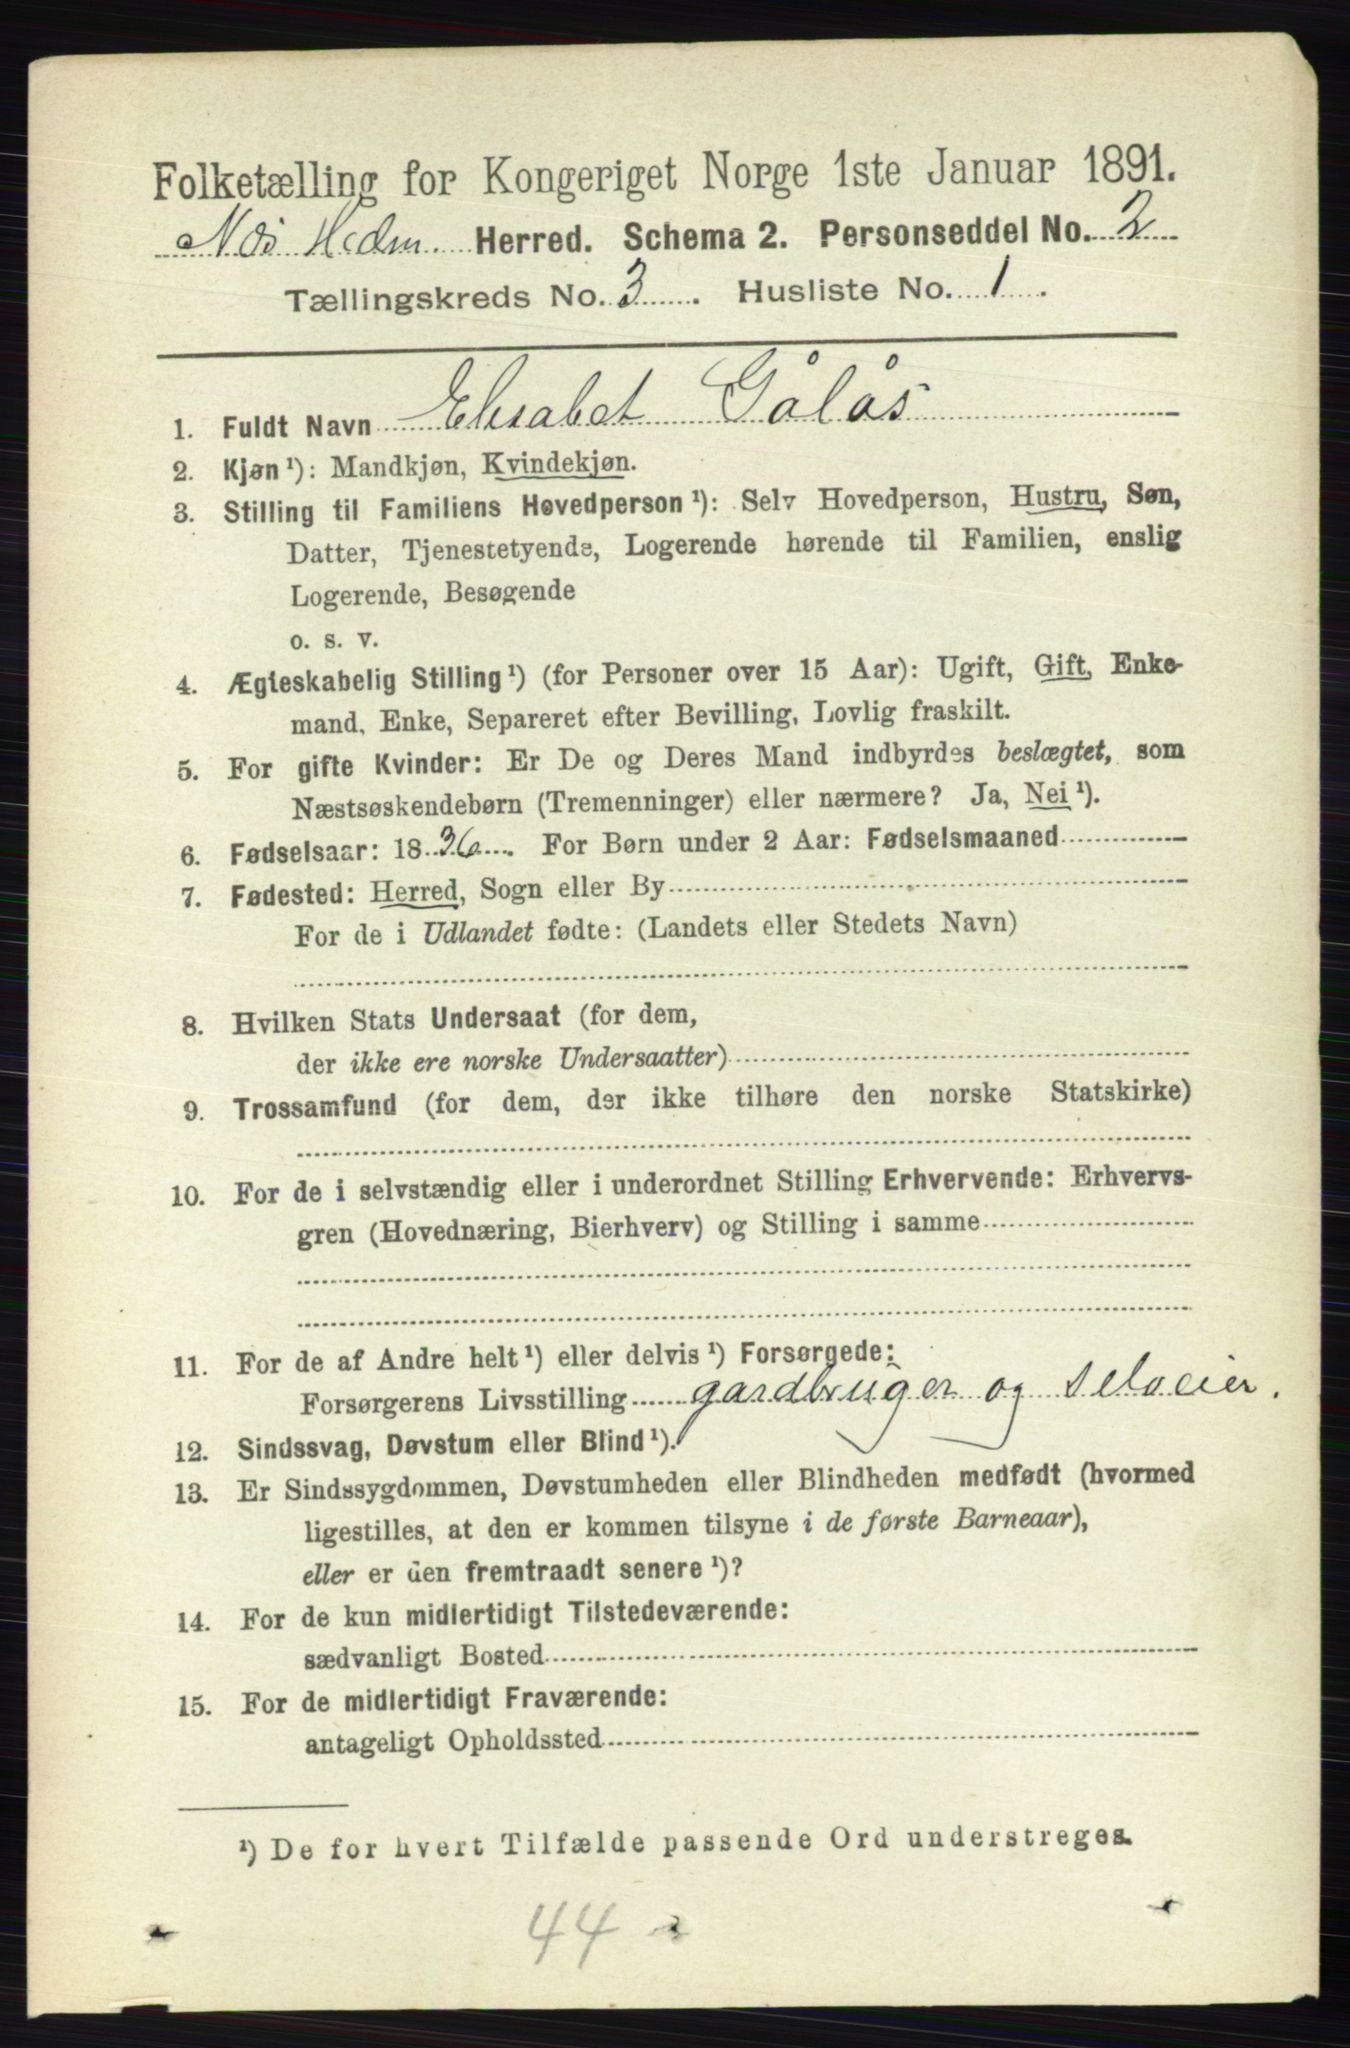 Folketælling for Kongeriget Norge 1ste Januar 1891.
Nes Hedm. Herred. Schema 2. Personseddel No. 2
Tællingskreds No. 3. Husliste No. 1.
1. Fuldt Navn Elisabet Gålås
2. Kjøn¹): Mandkjøn, Kvindekjøn.
3. Stilling til Familiens Hovedperson¹): Selv Hovedperson, Hustru, Søn,
Datter, Tjenestetyende, Logerende hørende til Familien, enslig
Logerende, Besøgende
o. s. v.
4. Ægteskabelig Stilling¹) (for Personer over 15 Aar): Ugift, Gift, Enke-
mand, Enke, Separeret efter Bevilling, Lovlig fraskilt.
5. For gifte Kvinder: Er De og Deres Mand indbyrdes beslægtet, som
Næstsøskendebørn (Tremenninger) eller nærmere? Ja, Nei¹).
6. Fødselsaar: 1836. For Børn under 2 Aar: Fødselsmaaned
7. Fødested: Herred, Sogn eller By
For de i Udlandet fødte: (Landets eller Stedets Navn)
8. Hvilken Stats Undersaat (for dem,
der ikke ere norske Undersaatter)
9. Trossamfund (for dem, der ikke tilhøre den norske Statskirke)
10. For de i selvstændig eller i underordnet Stilling Erhvervende: Erhvervs-
gren (Hovednæring, Bierhverv) og Stilling i samme
11. For de af Andre helt¹) eller delvis¹) Forsørgede:
Forsørgerens Livsstilling gardbruger og selveier.
12. Sindssvag, Døvstum eller Blind¹).
13. Er Sindssygdommen, Døvstumheden eller Blindheden medfødt (hvormed
ligestilles, at den er kommen tilsyne i de første Barneaar),
eller er den fremtraadt senere¹)?
14. For de kun midlertidigt Tilstedeværende:
sædvanligt Bosted
15. For de midlertidigt Fraværende:
antageligt Opholdssted
¹) De for hvert Tilfælde passende Ord understreges.
44